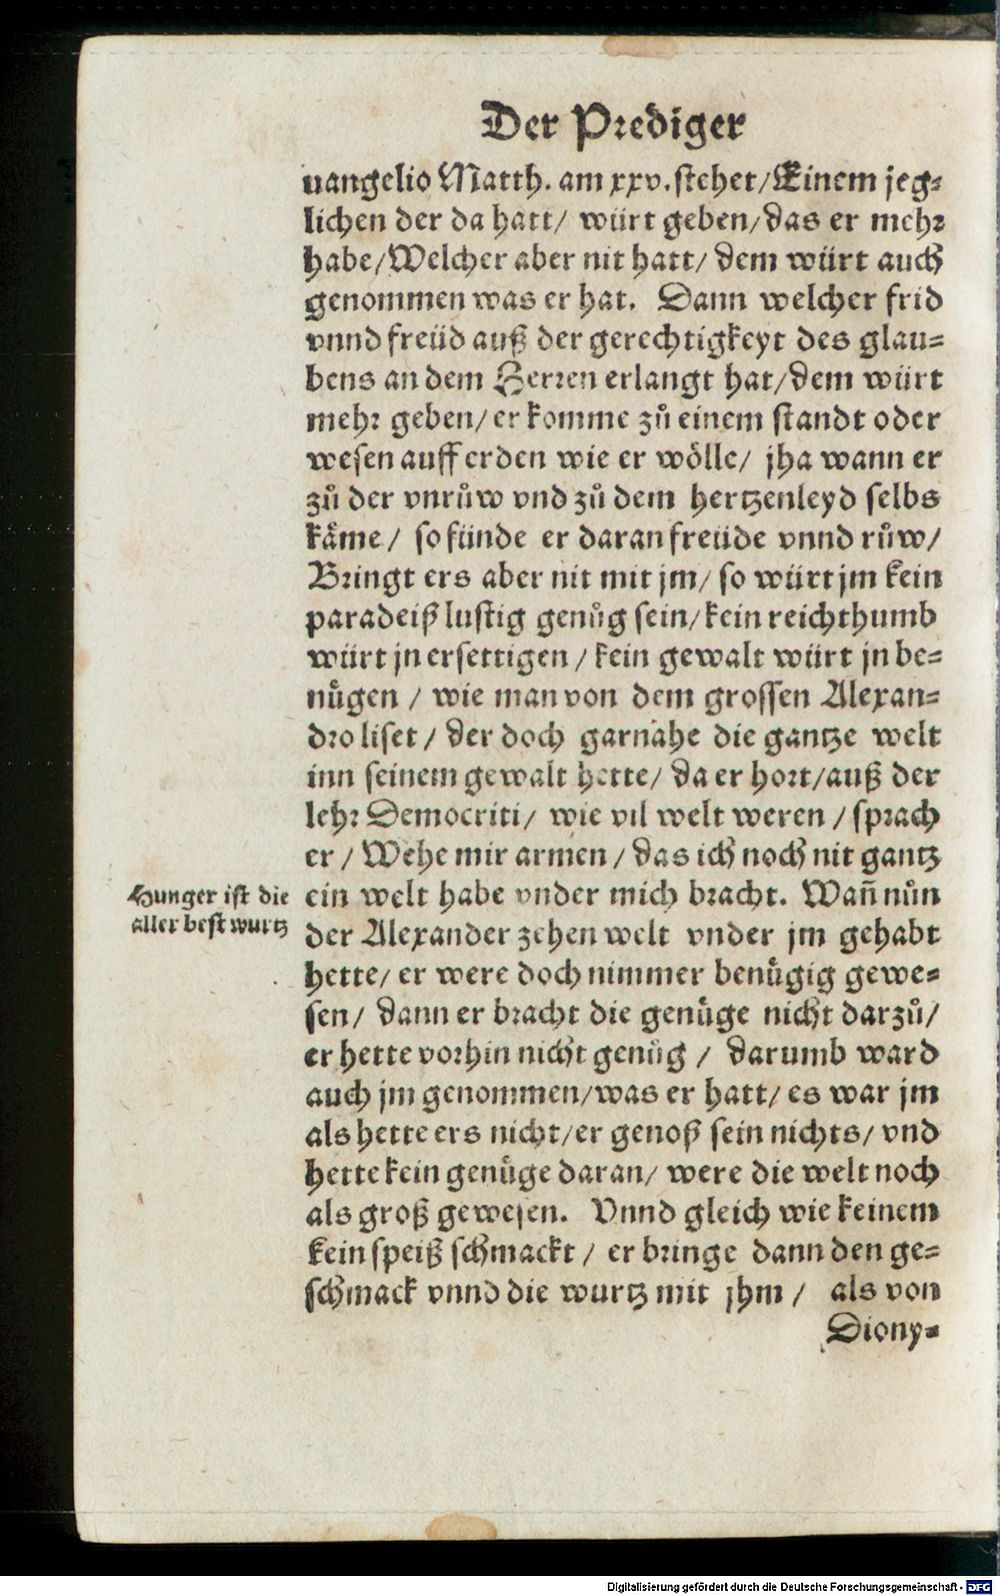 Der Prediger
uangelio Matth. am xxv. stehet/ Einem jeg-
lichen der da hatt/ würt geben/ das er mehr
habe/ Welcher aber nit hatt/ dem würt auch
genommen was er hat. Dann welcher frid
vnnd freüd auß der gerechtigkeyt des glau-
bens an dem Herren erlangt hat/ dem würt
mehr geben/ er komme zů einem standt oder
wesen auff erden wie er wölle/ jha wann er
zů der vnrůw vnd zů dem hertzenleyd selbs
käme/ so fünde er daran freüde vnnd růw/
Bringt ers aber nit mit jm/ so würt jm kein
paradeiß lustig genůg sein/ kein reichthumb
würt jn ersettigen/ kein gewalt würt jn be-
nügen/ wie man von dem grossen Alexan-
dro liset/ der doch garnahe die gantze welt
inn seinem gewalt hette/ da er hort/ auß der
lehr Democriti/ wie vil welt weren/ sprach
er/ Wehe mir armen/ das ich noch nit gantz
Hunger ist die
aller best wurtz
ein welt habe vnder mich bracht. Wañ nůn
der Alexander zehen welt vnder jm gehabt
hette/ er were doch nimmer benügig gewe-
sen/ dann er bracht die genüge nicht darzů/
er hette vorhin nicht genůg/ darumb ward
auch jm genommen/ was er hatt/ es war jm
als hette ers nicht/ er genoß sein nichts/ vnd
hette kein genüge daran/ were die welt noch
als groß gewesen. Vnnd gleich wie keinem
kein speiß schmackt/ er bringe dann den ge-
schmack vnnd die wurtz mit jhm/ als von
Diony-
Digitalisierung gefördert durch die Deutsche Forschungsgemeinschaft - DFG